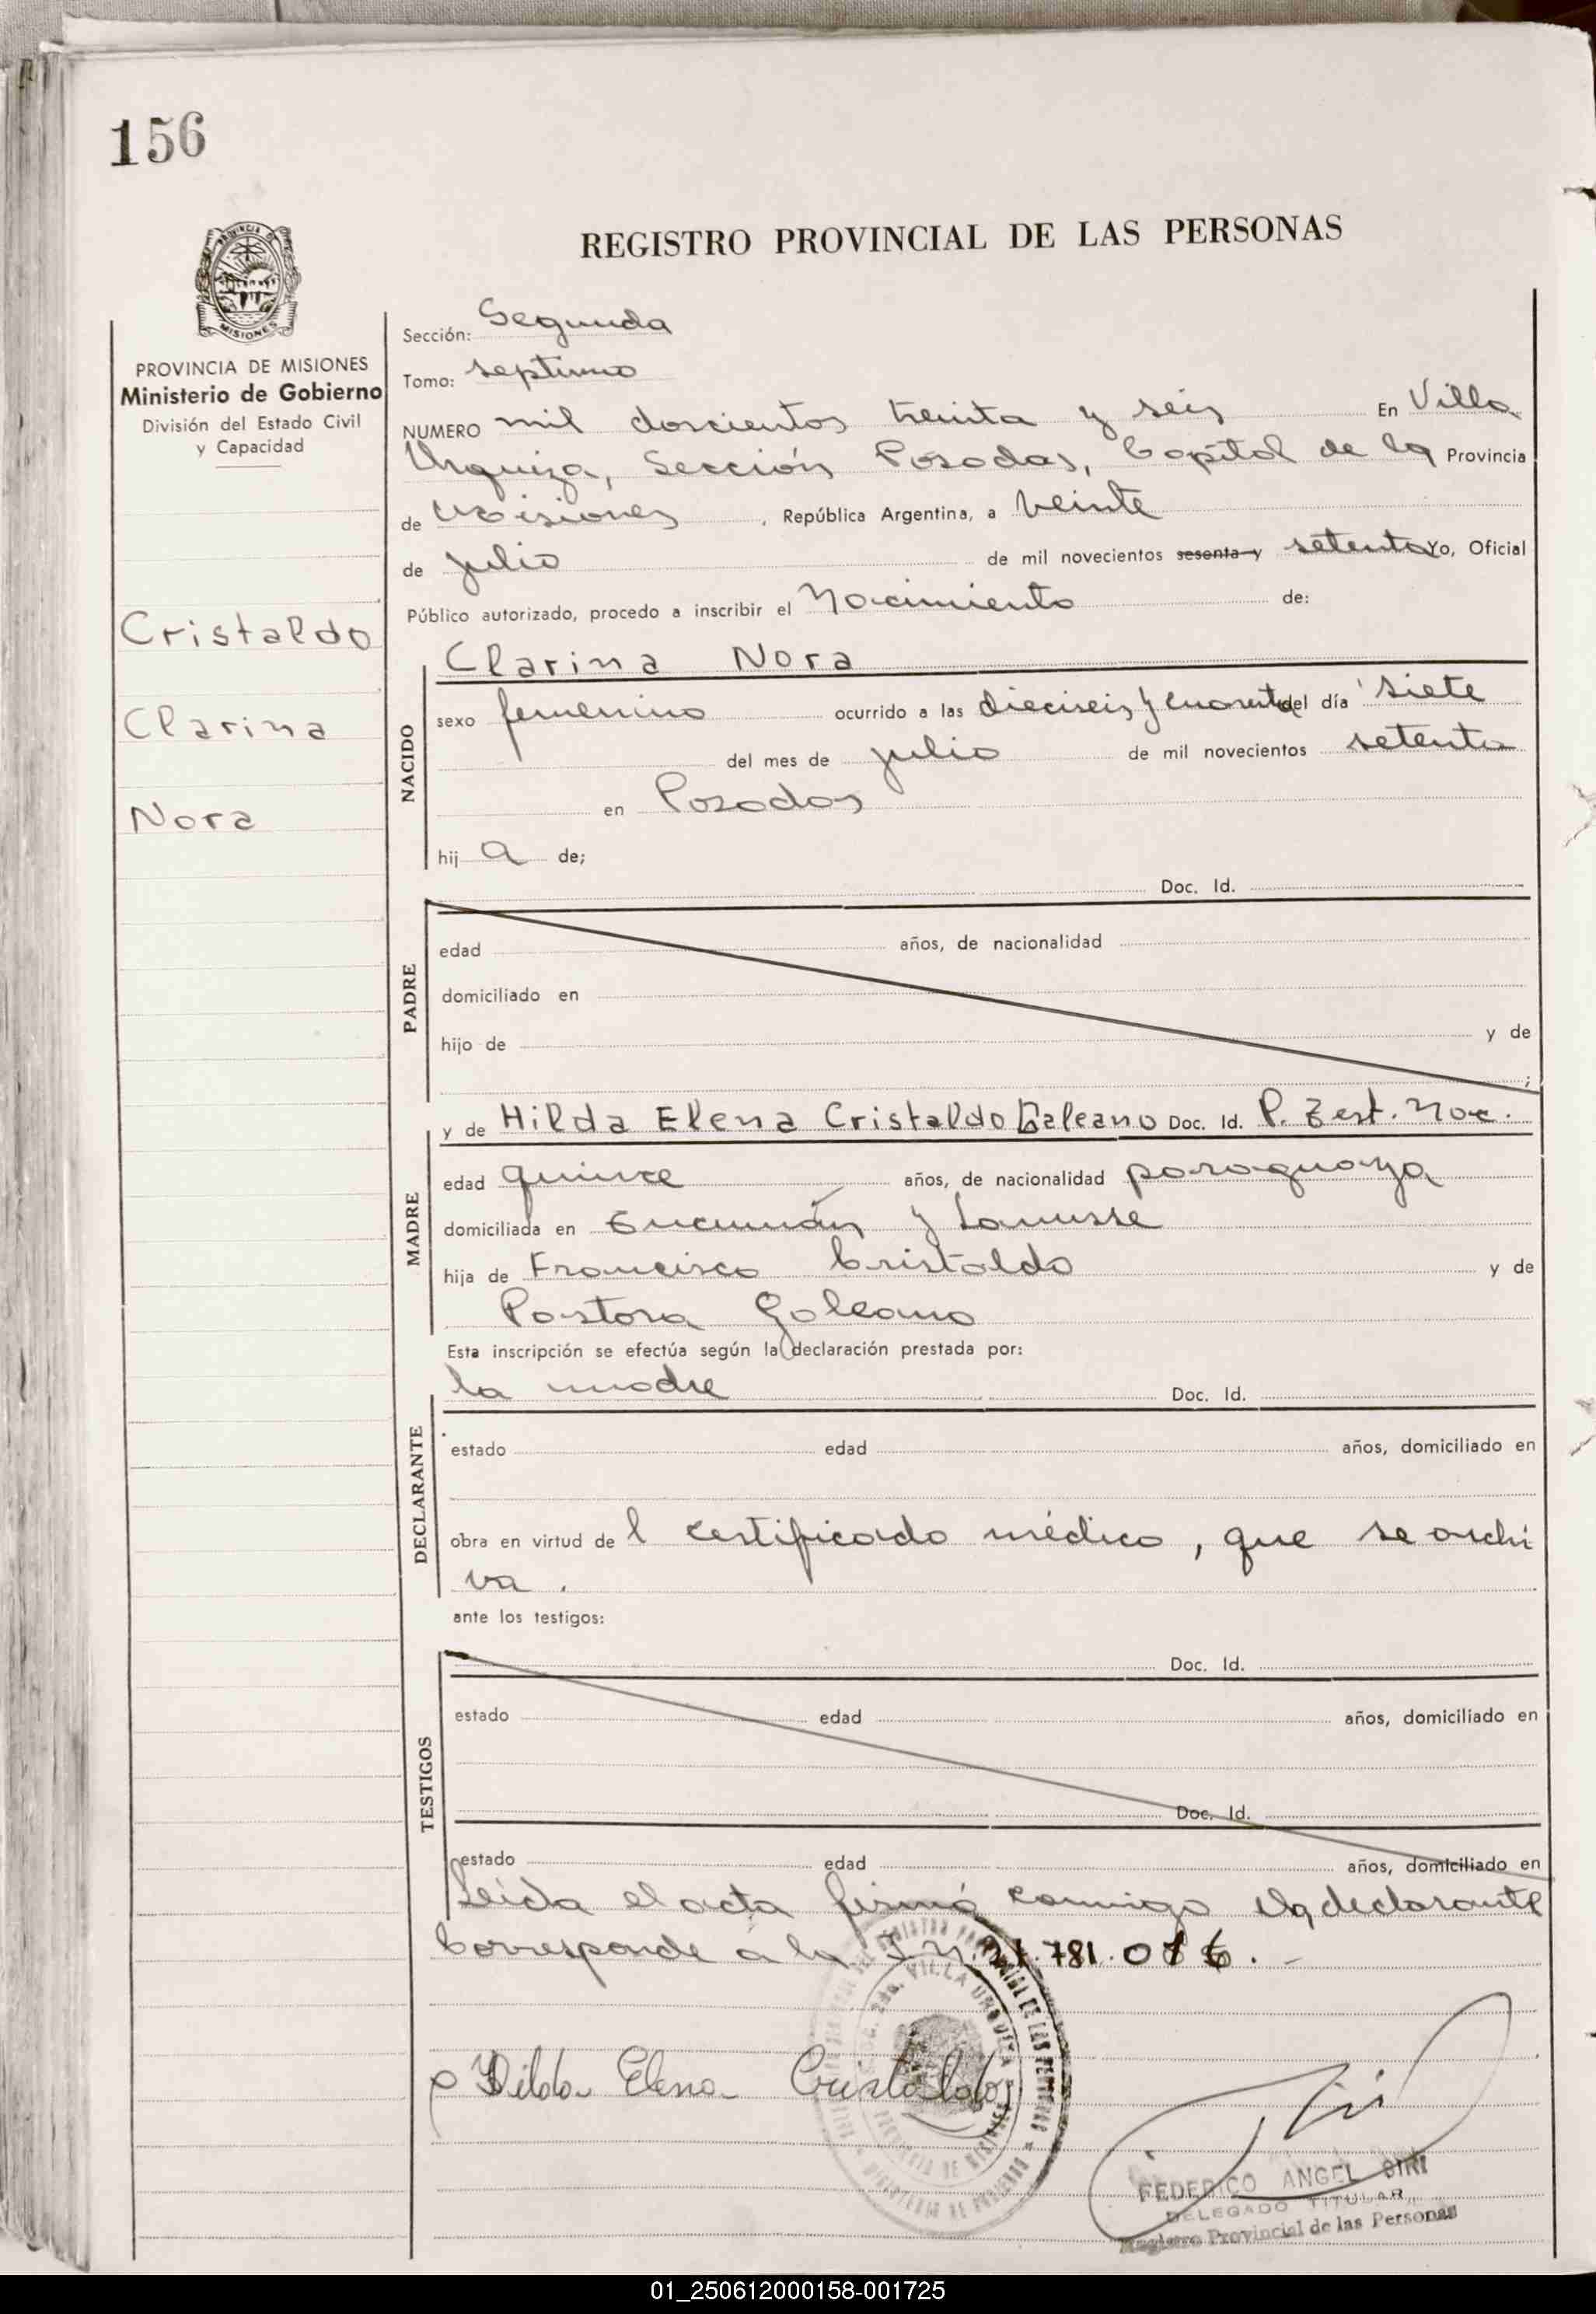 156
REGISTRO PROVINCIAL DE LAS PERSONAS
MISIONES
PROVINCIA DE MISIONES
Ministerio de Gobierno
División del Estado Civil
y Capacidad
Cristaldo
Clarina
Nora
Sección: Segunda
Tomo: septimo
NUMERO mil doscientos treinta y seis En Villa
Urquiza, Sección Posadas, Capital de la Provincia
de Misiones, República Argentina, a veinte
de julio de mil novecientos sesenta y setenta Yo, Oficial
Público autorizado, procedo a inscribir el Nacimiento de:
Clarina Nora
NACIDO
sexo femenino ocurrido a las dieciseis y cuarenta del día siete
del mes de julio de mil novecientos setenta
en Posadas
hij a de;
Doc. Id.
PADRE
edad años, de nacionalidad
domiciliado en
hijo de y de
;
y de Hilda Elena Cristaldo Galeano Doc. Id. P. Test. Nac.
MADRE
edad quince años, de nacionalidad paraguaya
domiciliada en Tucumán y Lanusse
hija de Francisco Cristaldo y de
Pastora Galeano
Esta inscripción se efectúa según la declaración prestada por:
la madre Doc. Id.
DECLARANTE
estado edad años, domiciliado en
obra en virtud de l certificado médico, que se archi
va.
ante los testigos:
Doc. Id.
TESTIGOS
estado edad años, domiciliado en
Doc. Id.
estado edad años, domiciliado en
Leída el acta firmó conmigo la declarante
Corresponde a la 781.016.-
Hilda Elena Cristaldo
VILLA URQUIZA
FEDERICO ANGEL SIRI
DELEGADO TITULAR
Registro Provincial de las Personas
01_250612000158-001725